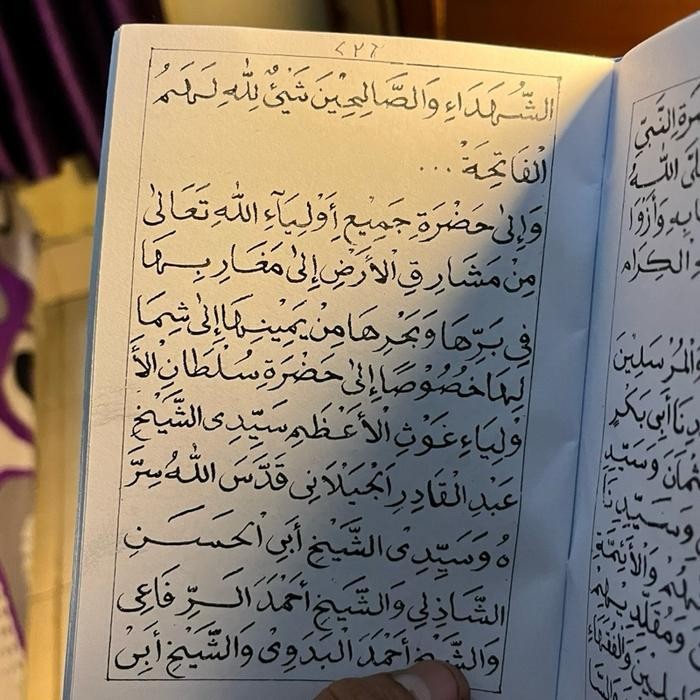 ٢٢٦
الشُّهَدَاءِ وَالصَّالِحِيْنَ شَيْئٌ لِلّٰهِ لَهُمُ
الْفَاتِحَةْ ...
وَإِلىٰ حَضْرَةِ جَمِيْعِ أَوْلِيَآءِ اللّٰهِ تَعَالىٰ
مِنْ مَشَارِقِ الْأَرْضِ إِلىٰ مَغَارِبِهَا
فِي بَرِّهَا وَبَحْرِهَا مِنْ يَمِيْنِهَا إِلىٰ شِمَا
لِهَا خُصُوْصًا إِلىٰ حَضْرَةِ سُلْطَانِ الْأَ
وْلِيَاءِ غَوْثِ الْأَعْظَمِ سَيِّدِى الشَّيْخِ
عَبْدِ الْقَادِرِ الْجَيْلَانِى قَدَّسَ اللّٰهُ سِرَّ
هُ وَسَيِّدِى الشَّيْخِ أَبِى الْحَسَنِ
الشَّاذِلِي وَالشَّيْخِ أَحْمَدَ الرِّفَاعِى
وَالشَّيْخِ أَحْمَدَ الْبَدَوِىْ وَالشَّيْخِ أَبِىْ
النَّبِيِّ
اللّٰهُ
وَأَزْوَا
الْكِرَامِ
وَالْمُرْسَلِيْنَ
أَبِى بَكْرٍ
وَسَيِّدِ
وَسَيِّدِنَا
وَالْأَئِمَّةِ
وَمُقَلِّدِيْهِمْ
وَالْفُقَهَاءِ